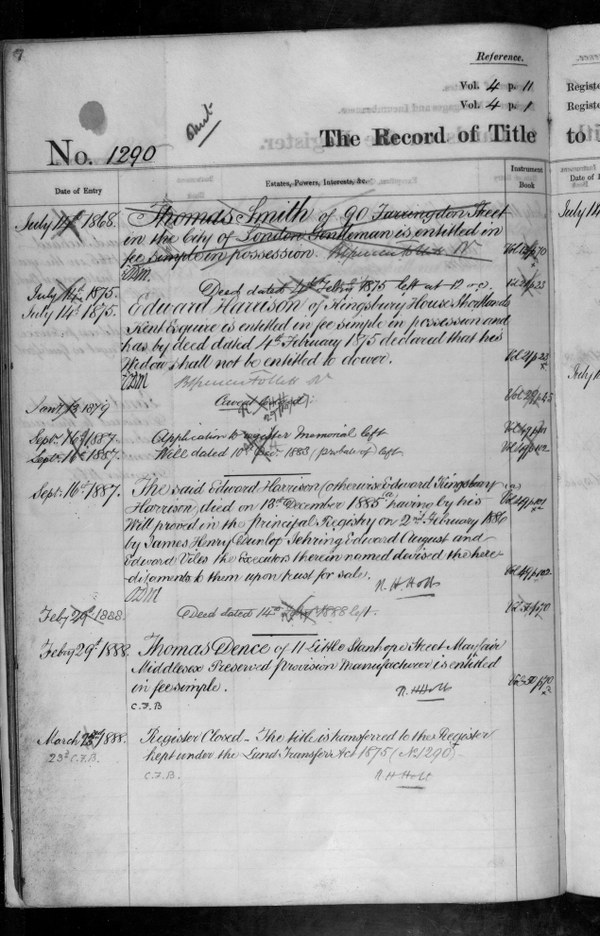 Reference.
Vol. 4 p. 11
Vol. 4 p. 1
The Record of Title to
No. 1290
Date of Entry
Estates, Powers, Interests, &c.
Instrument Book
July 14th 1868.
Thomas Smith of 90 Farringdon Street
in the City of London Gentleman is entitled in
fee simple in possession.
July 14th 1875.
Deed dated 4th Feb 1875 left at 12 o c.
July 14th 1875.
Edward Harrison of Kingsbury House Shortlands
Kent Esquire is entitled in fee simple in possession and
has by deed dated 4th February 1875 declared that his
Widow shall not be entitled to dower.
1879
Sept. 16th 1887.
Application to register Memorial left
Sept. 16th 1887.
Will dated 10th Dec. 1883 (probate of) left
Sept. 16th 1887.
The said Edward Harrison (otherwise Edward Kingsbury
Harrison) died on 13th December 1885 having by his
Will proved in the principal Registry on 2nd February 1886
by James Henry Dunlop Jehring Edward August and
Edward Viles the Executors therein named devised the here-
ditaments to them upon trust for sale.
N. H. Holt
Feby 29th 1888.
Deed dated 14th 1888 left.
Feby 29th 1888.
Thomas Dence of 11 Little Stanhope Street Mayfair
Middlesex Preserved Provision Manufacturer is entitled
in fee simple.
N. H. Holt
C.F.B
March 1888.
23rd C.F.B.
Register Closed – The title is transferred to the Register
kept under the Land Transfer Act 1875 (No 1290)
C.F.B.
N. H. Holt